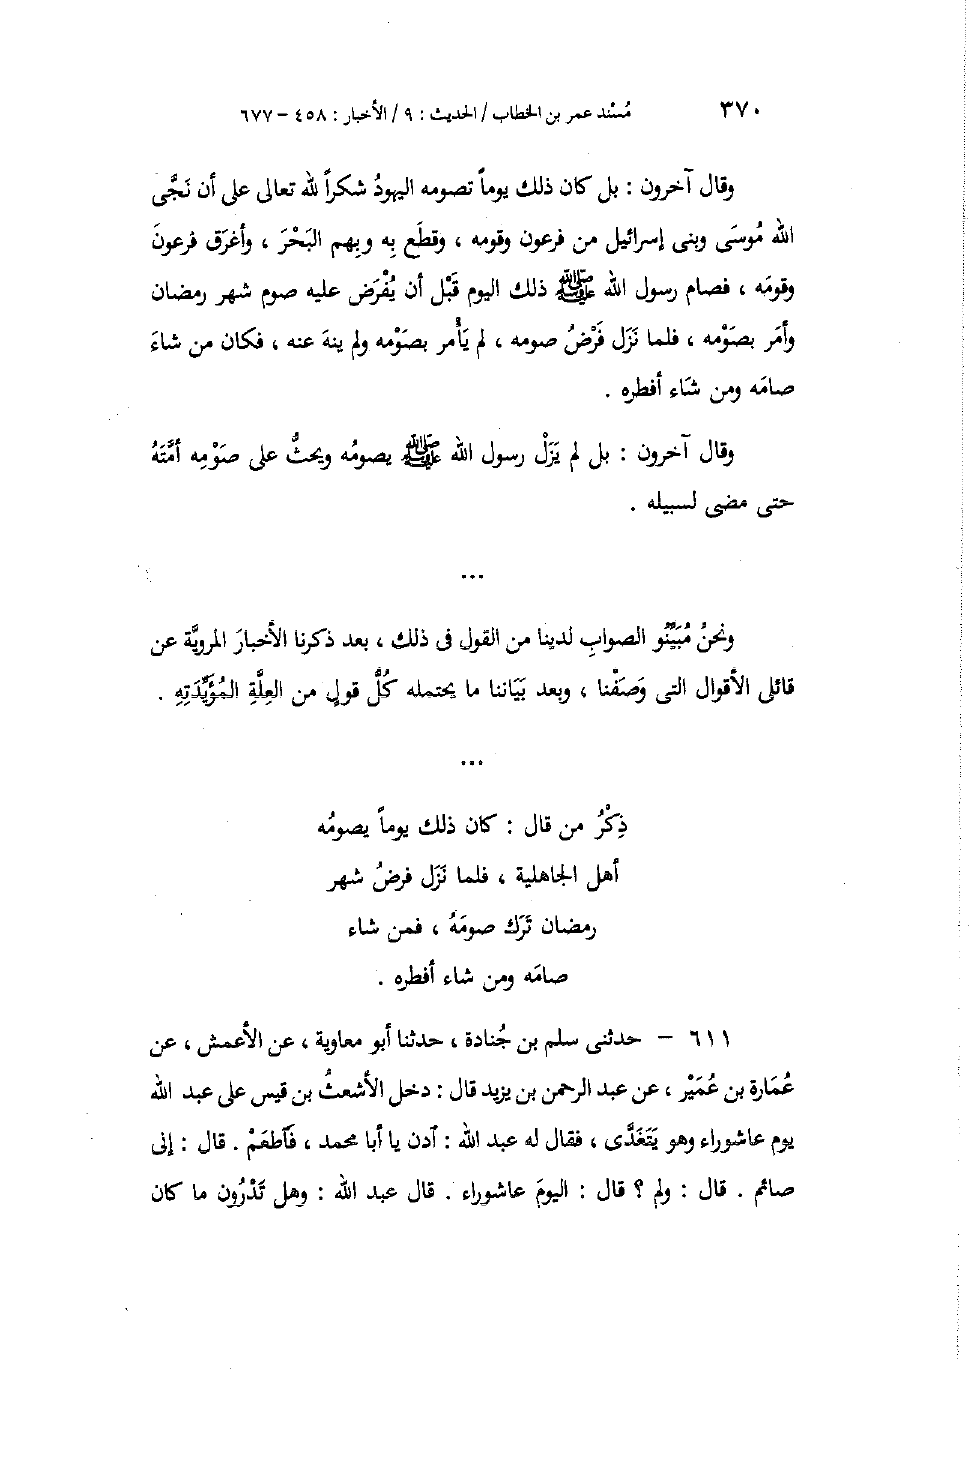 ٣٧٠ مُسْند عمر بن الخطاب / الحديث : ٩ / الأخبار : ٤٥٨ – ٦٧٧
وقال آخرون : بل كان ذلك يوماً تصومه اليهودُ شكراً لله تعالى على أن نَجَّى
الله مُوسَى وبنى إسرائيل من فرعون وقومه ، وقطَع بِه وبِهم البَحْرَ ، وأغرَق فرعونَ
وقومَه ، فصام رسول الله ﷺ ذلك اليوم قَبْل أن يُفْرَض عليه صوم شهر رمضان
وأمَر بصَوْمه ، فلما نَزَل فَرْضُ صومه ، لم يَأْمر بصَوْمه ولم ينهَ عنه ، فكان من شاءَ
صامَه ومن شَاء أفطره .
وقال آخرون : بل لم يَزَلْ رسول الله ﷺ يصومُه ويحثُّ على صَوْمِه أمَّتَهُ
حتى مضى لسبيله .
...
ونحنُ مُبَيِّنُو الصوابِ لدينا من القول فى ذلك ، بعد ذكرنا الأخبارَ المرويَّة عن
قائلى الأقوال التى وَصَفْنا ، وبعد بَيَاننا ما يحتمله كُلُّ قولٍ من العِلَّةِ المُؤَيِّدَتِهِ .
...
ذِكْرُ من قال : كان ذلك يوماً يصومُه
أهل الجاهلية ، فلما نَزَل فرضُ شهر
رمضان تَرَك صومَهُ ، فمن شاء
صامَه ومن شاء أفطره .
٦١١ – حدثنى سلم بن جُنادة ، حدثنا أبو معاوية ، عن الأعمش ، عن
عُمَارة بن عُمَيْر ، عن عبد الرحمن بن يزيد قال : دخل الأشعثُ بن قيس على عبد الله
يوم عاشوراء وهو يَتَغَدَّى ، فقال له عبد الله : آدن يا أبا محمد ، فَآطعَمْ . قال : إنى
صائم . قال : ولم ؟ قال : اليومَ عاشوراء . قال عبد الله : وهل تَدْرُون ما كان